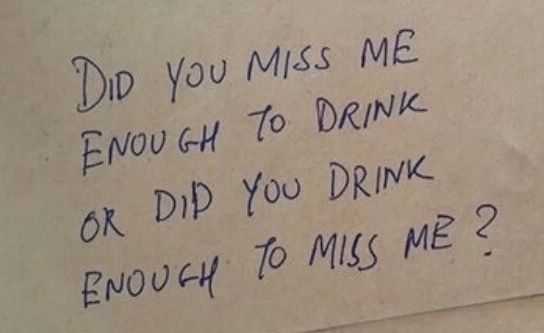 DID YOU MISS ME
ENOUGH TO DRINK
OR DID YOU DRINK
ENOUGH TO MISS ME ?